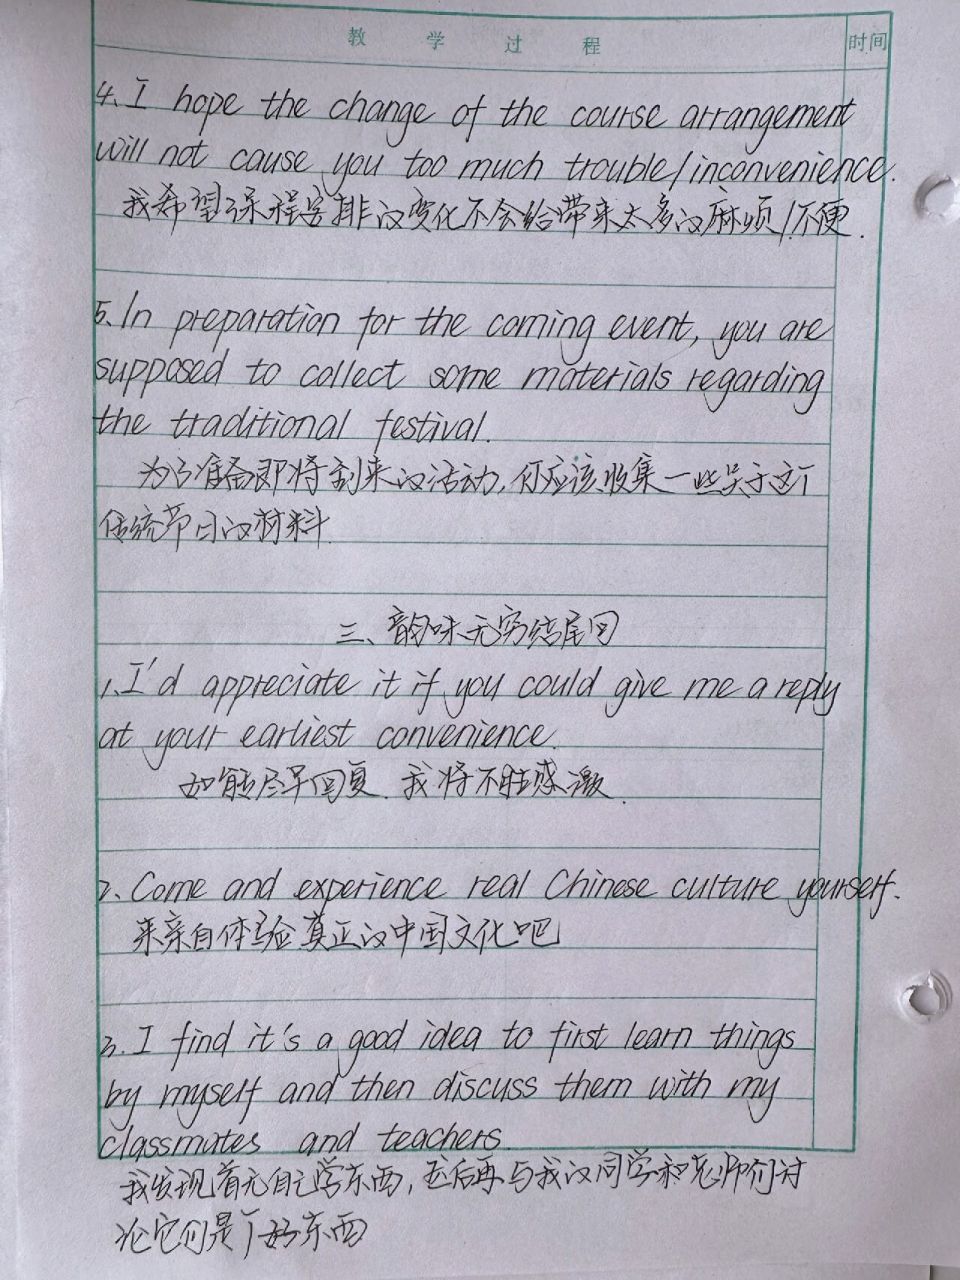 教 学 过 程 时间
4、I hope the change of the course arrangement
will not cause you too much trouble/inconvenience.
我希望课程安排的变化不会给带来太多的麻烦/不便.
5、In preparation for the coming event, you are
supposed to collect some materials regarding
the traditional festival.
为了准备即将到来的活动,你应该收集一些关于这个
传统节日的材料
三、韵味无穷结尾回
1、I'd appreciate it if you could give me a reply
at your earliest convenience.
如能尽早回复.我将不胜感激.
2、Come and experience real Chinese culture yourself.
来亲自体验真正的中国文化吧
3、I find it's a good idea to first learn things
by myself and then discuss them with my
classmates and teachers.
我发现首先自己学东西,然后再与我的同学和老师们讨
论它们是个好东西